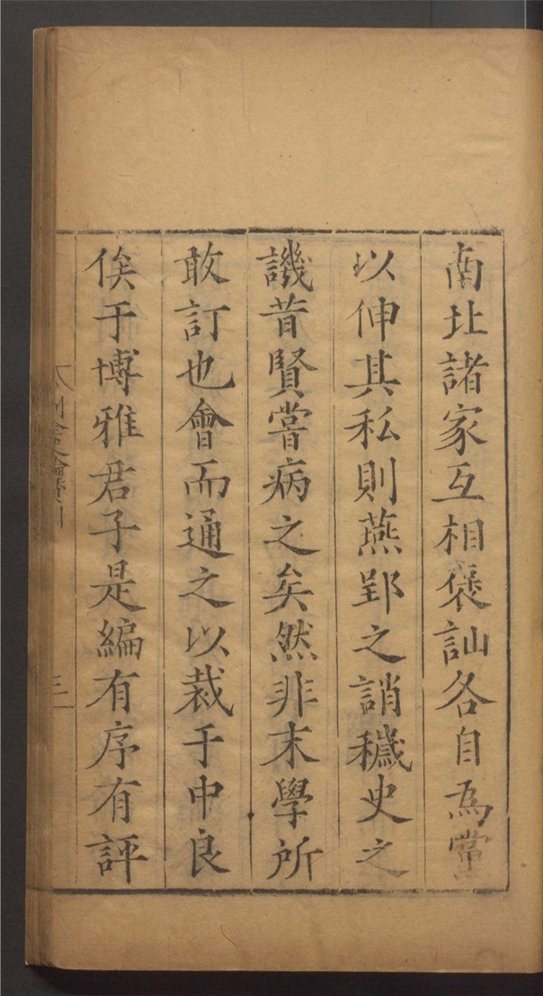 南北諸家互相褒訕各自為黨
以伸其私則燕郢之誚穢史之
譏昔賢嘗病之矣然非末學所
敢訂也會而通之以裁于中良
俟于博雅君子是編有序有評